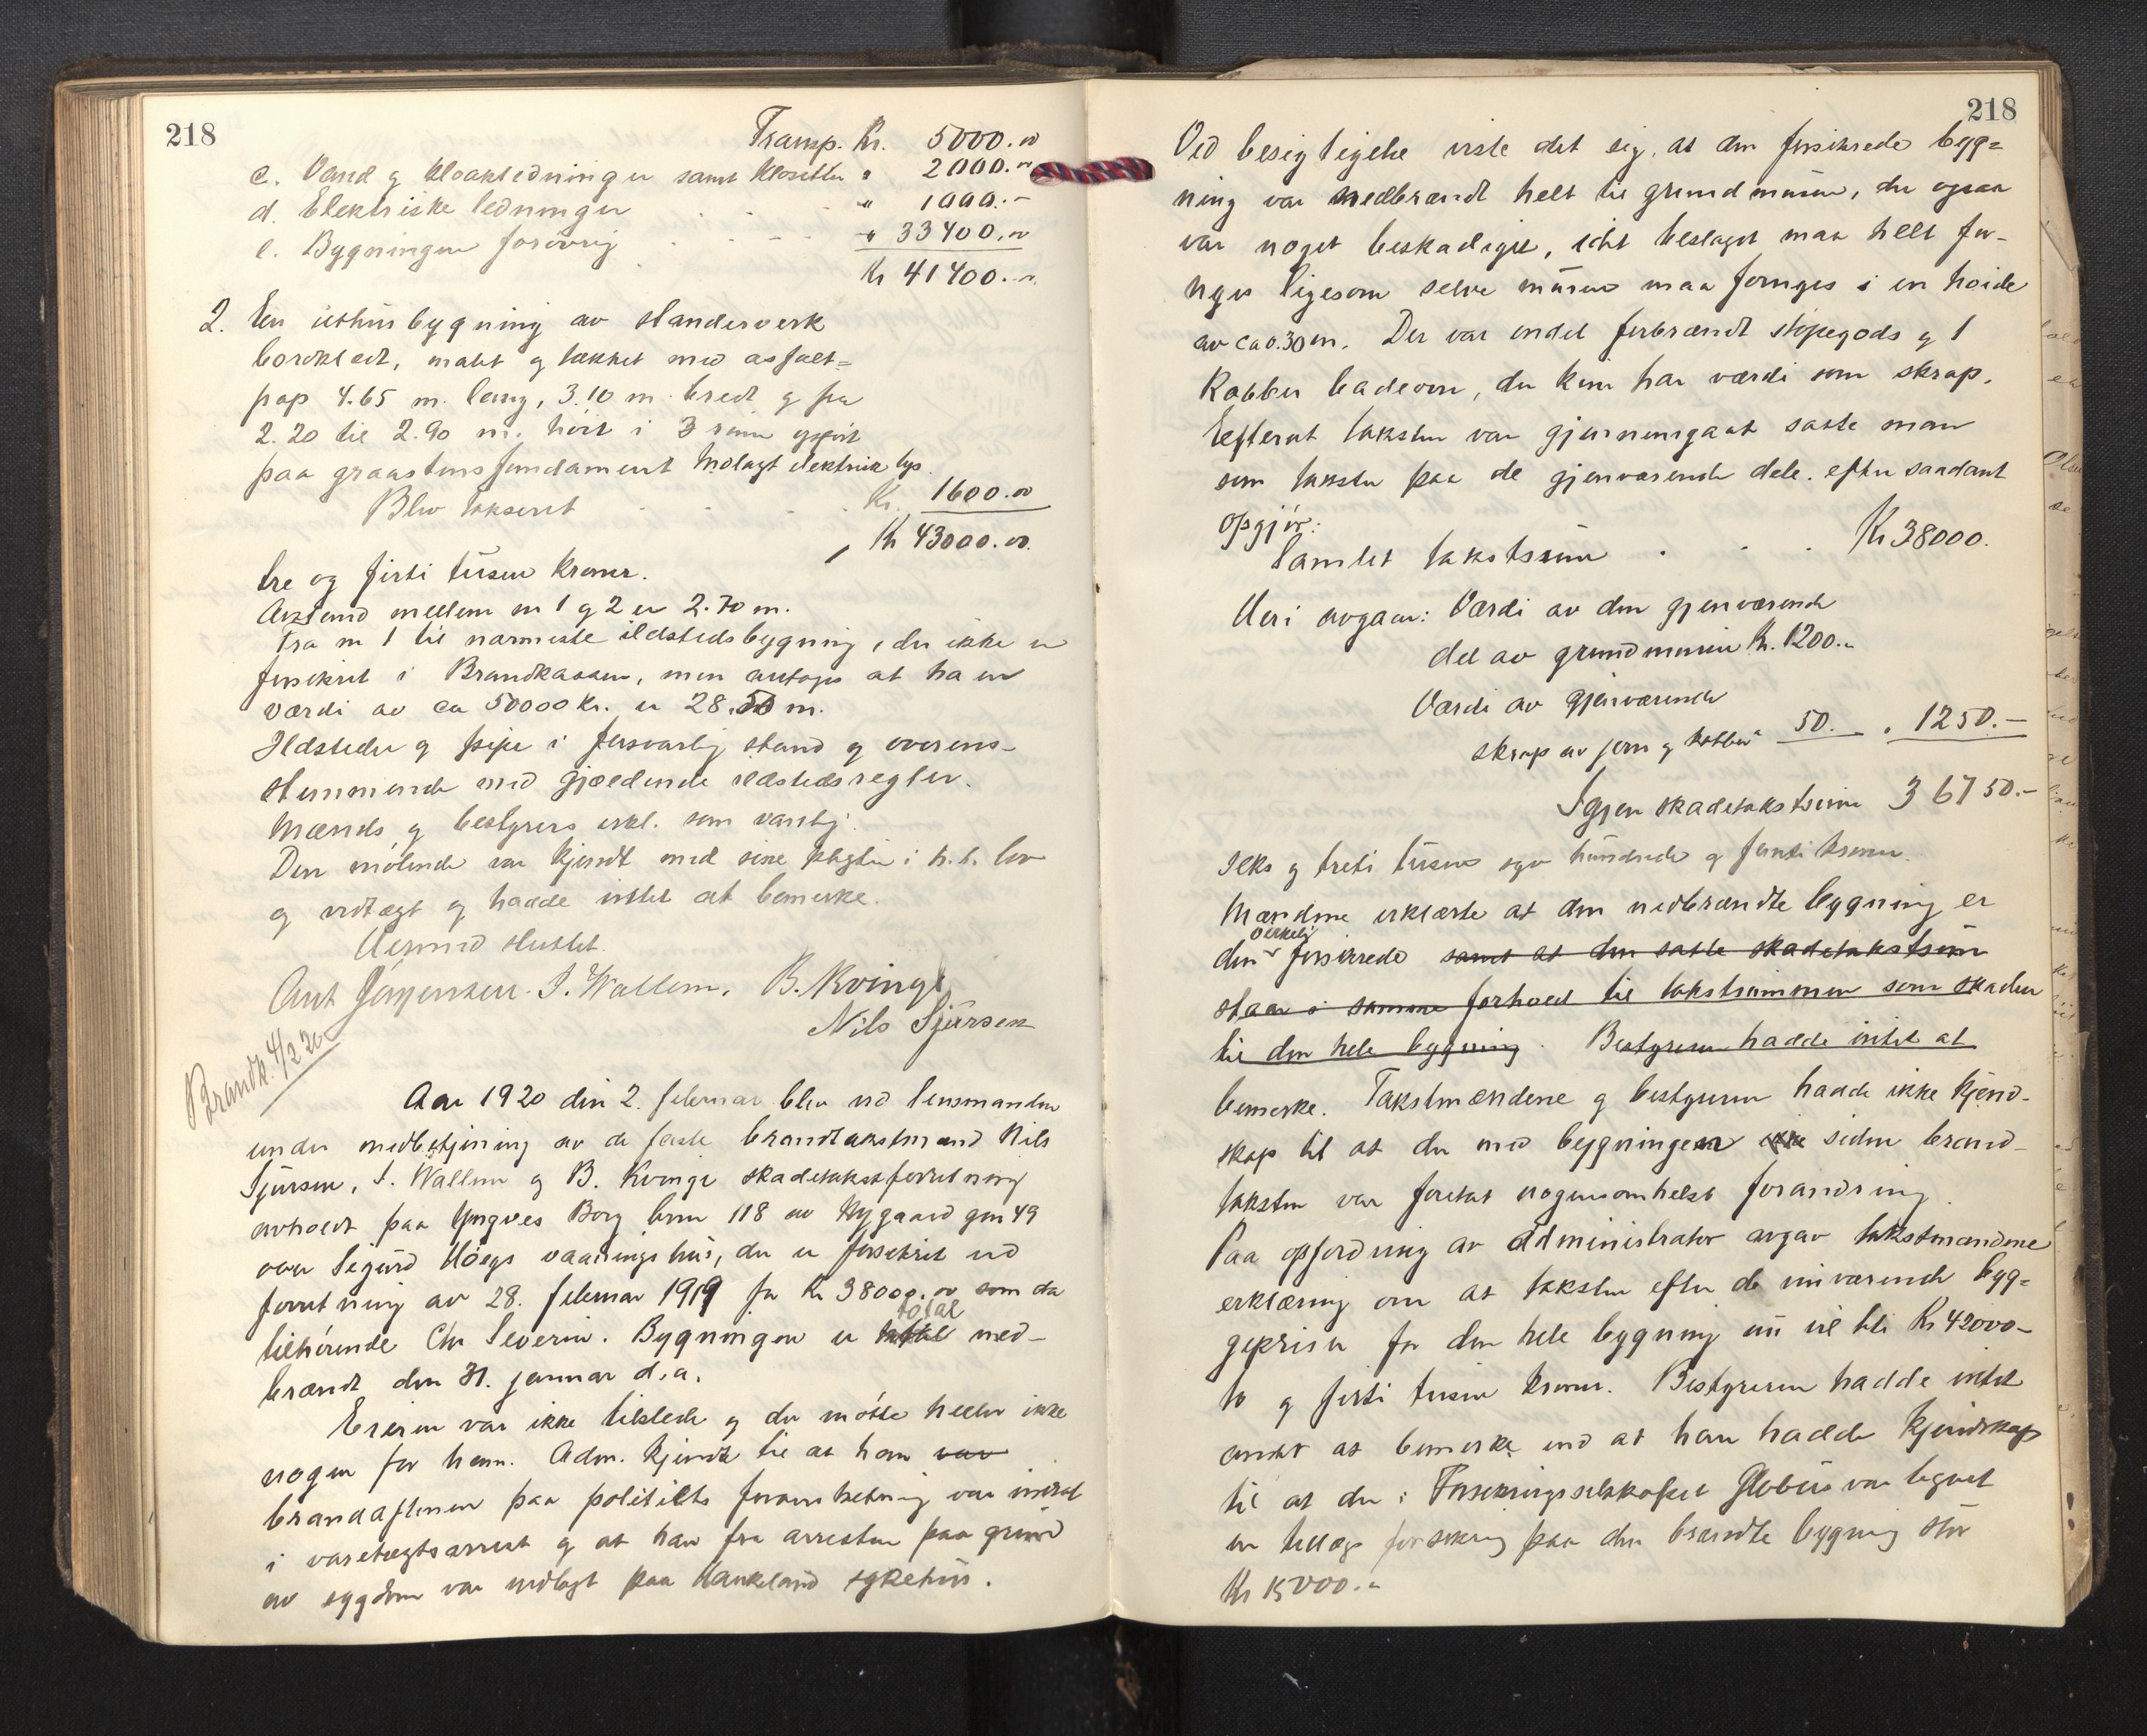 218
Transp. Kr. 5000.00
c. Vand og kloakledninger samt klosetter " 2000.00
d. Elektriske ledninger " 1000.-
e. Bygningen forøvrig " 33400.00
Kr 41400.-
2. En uthusbygning av standerverk
bordklædt, malet og tækket med asfalt=
pap 4.65 m. lang, 3.10 m bred og fra
2.20 til 2.90 m. høit i 3 rum opført
paa graastensfundament Indlagt elektrisk lys.
Blev takseret Kr. 1600.00
Kr 43000.00
tre og firti tusen kroner.
Avstand mellem nr 1 og 2 er 2.70 m.
Fra nr 1 til nærmeste ildstedsbygning, der ikke er
forsikret i Brandkassen, men antages at ha en
værdi av ca 50000 kr. er 28.50 m.
Ildsteder og pipe i forsvarlig stand og overens-
stemmende med gjældende ildstedsregler.
Mænds og bestyrers erkl. som vanlig.
Den møtende var kjendt med sine pligter i h.t. lov
og vedtægt og hadde intet at bemerke.
Hermed sluttet.
Ant Jørgensen. I. Wallem. B. Kvinge
Nils Sjursen
Brandk. 4/2 20
Aar 1920 den 2. februar blev ved lensmanden
under medbetjening av de faste brandtakstmænd Nils
Sjursen, I. Wallem og B. Kvinge skadetakstforretning
avholdt paa Yngves Borg brnr 118 av Nygaard gnr 49
over Sigurd Høegs vaaningshus, der er forsikret ved
forretning av 28. februar 1919 for Kr 38000.00 som da
tilhørende Chr Severin. Bygningen er total ned-
brændt den 31. januar d.a.
Eieren var ikke tilstede og der møtte heller ikke
nogen for ham. Adm. kjendte til at han var
brandaftenen paa politiets foranstaltning var indsat
i varetægtsarrest og at han fra arresten paa grund
av sygdom var indlagt paa Haukeland sykehus.
218
Ved besigtigelse viste det sig, at den forsikrede byg=
ning var nedbrændt helt til grundmuren, der ogsaa
var noget beskadiget, idet beslaget maa helt for-
nyes ligesom selve muren maa fornyes i en høide
av ca 0.30 m. Der var endel forbrændt støpegods og 1
Kobber badeovn, der kun har værdi som skrap.
Efterat taksten var gjennemgaat satte man
som takster paa de gjenværende dele. efter saadant
opgjør:
Samlet takstsum Kr 38000.
Heri avgaar: Værdi av den gjenværende
del av grundmuren Kr. 1200.-
Værdi av gjenværende
skrap av jern og kobber 50. " 1250.-
Igjen skadetakstsum 36750.-
seks og treti tusen syv hundrede og femti kroner.
Mændene erklærte at den nedbrændte bygning er
den virkelig forsikrede samt at den satte skadetakstsum
staar i samme forhold til takstsummen som skaden
til den hele bygning. Bestyreren hadde intet at
bemerke. Takstmændene og bestyreren hadde ikke kjend-
skap til at der med bygningen siden brand-
taksten var foretat nogensomhelst forandring.
Paa opfordring av administrator avgav takstmændene
erklæring om at taksten efter de nuværende byg=
gepriser for den hele bygning nu vil bli Kr 42000-
to og firti tusen kroner. Bestyreren hadde intet
andet at bemerke end at han hadde kjendskap
til at der i Forsikringsselskapet Globus var tegnet
en tillægsforsikring paa den brændte bygning stor
Kr 15000.-